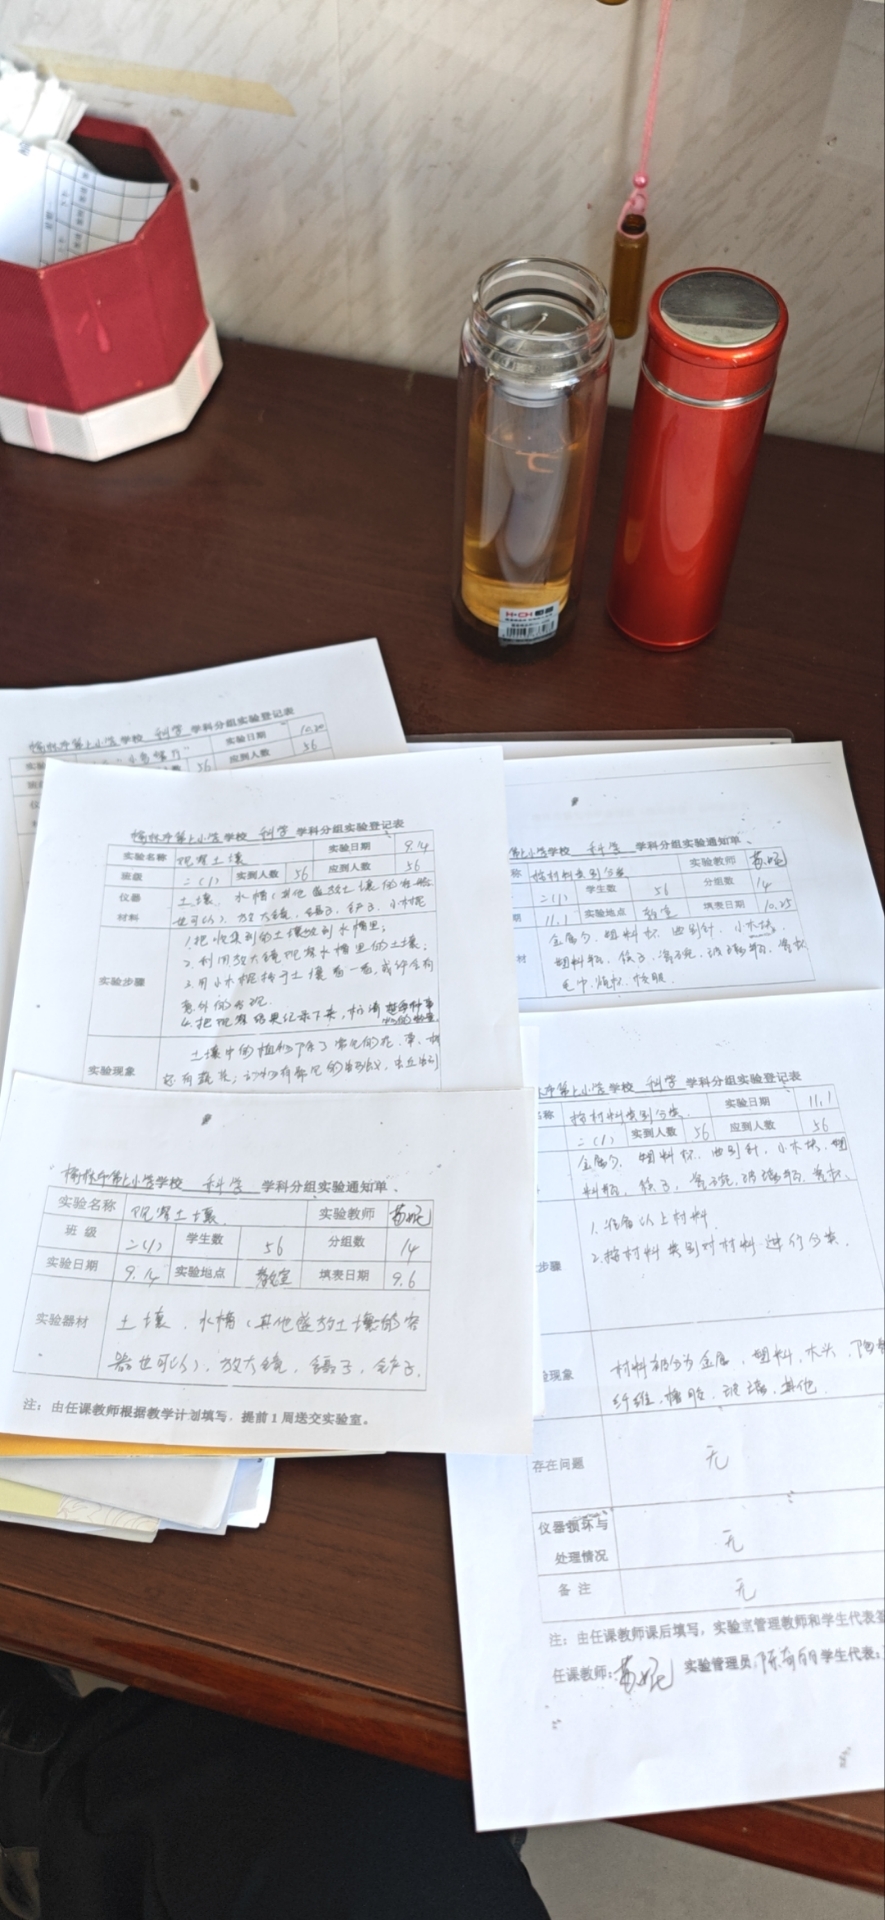 学校 科学 学科分组实验登记表
实验日期 10.20
56 应到人数 56
学校 科学 学科分组实验登记表
实验名称 观察土壤 实验日期 9.14
班级 二(1) 实到人数 56 应到人数 56
仪器 土壤、水槽(其他盛放土壤的容器
材料 也可以)、放大镜、镊子、铲子、小木棍
1.把收集到的土壤放到水槽里;
2.利用放大镜观察水槽里的土壤;
实验步骤 3.用小木棍拨于土壤看一看,或许会有
意外的发现.
4.把观察结果记录下来,
土壤中的植物除了常见的花、草、树
实验现象 还有蔬菜;动物有常见的
学校 科学 学科分组实验通知单
实验名称 观察土壤 实验教师
班级 二(1) 学生数 56 分组数 14
实验日期 9.14 实验地点 教室 填表日期 9.6
实验器材 土壤、水槽(其他盛放土壤的容
器也可以)、放大镜、镊子、铲子.
注:由任课教师根据教学计划填写,提前1周送交实验室。
学校 科学 学科分组实验通知单
称 按材料类别分类 实验教师
二(1) 学生数 56 分组数 14
期 11.1 实验地点 教室 填表日期 10.25
材 金属勺、塑料杯、回形针、小木块、
塑料瓶、筷子、瓷碗、玻璃瓶、
毛巾、纸板、
学校 科学 学科分组实验登记表
名称 按材料类别分类 实验日期 11.1
二(1) 实到人数 56 应到人数 56
金属勺、塑料杯、回形针、小木块、塑
料瓶、筷子、瓷碗、玻璃瓶、
1.准备以上材料.
步骤 2.按材料类别对材料进行分类.
现象 材料可分为金属、塑料、木头、陶瓷
纤维、橡胶、玻璃、其他.
存在问题 无
仪器损坏与
处理情况 无
备注 无
注:由任课教师课后填写,实验室管理教师和学生代表签
任课教师: 实验管理员: 学生代表: